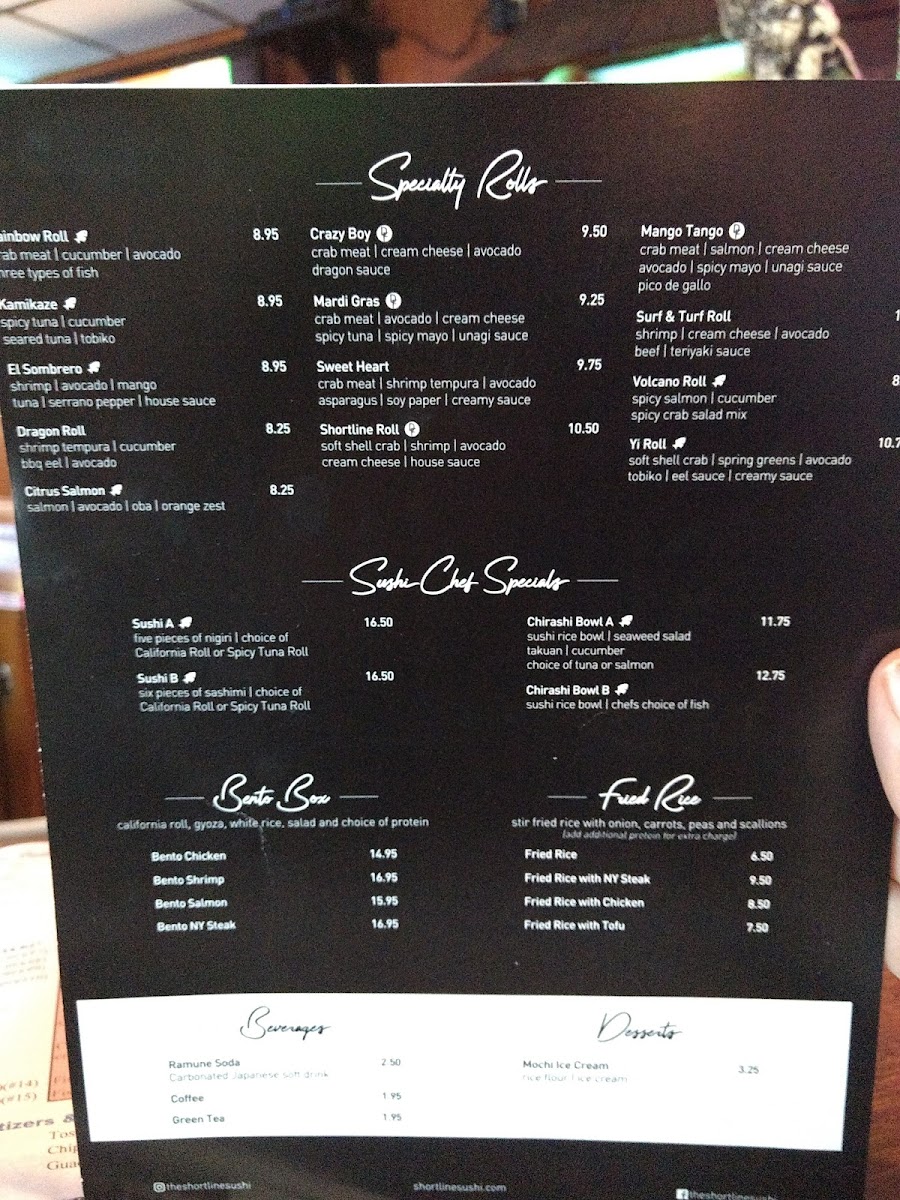 Specialty Rolls
ainbow Roll 8.95
rab meat | cucumber | avocado
hree types of fish
Kamikaze 8.95
spicy tuna | cucumber
seared tuna | tobiko
El Sombrero 8.95
shrimp | avocado | mango
tuna | serrano pepper | house sauce
Dragon Roll 8.25
shrimp tempura | cucumber
bbq eel | avocado
Citrus Salmon 8.25
salmon | avocado | oba | orange zest
Crazy Boy 9.50
crab meat | cream cheese | avocado
dragon sauce
Mardi Gras 9.25
crab meat | avocado | cream cheese
spicy tuna | spicy mayo | unagi sauce
Sweet Heart 9.75
crab meat | shrimp tempura | avocado
asparagus | soy paper | creamy sauce
Shortline Roll 10.50
soft shell crab | shrimp | avocado
cream cheese | house sauce
Mango Tango
crab meat | salmon | cream cheese
avocado | spicy mayo | unagi sauce
pico de gallo
Surf & Turf Roll 1
shrimp | cream cheese | avocado
beef | teriyaki sauce
Volcano Roll 8
spicy salmon | cucumber
spicy crab salad mix
Yi Roll 10.7
soft shell crab | spring greens | avocado
tobiko | eel sauce | creamy sauce
Sushi Chef Specials
Sushi A 16.50
five pieces of nigiri | choice of
California Roll or Spicy Tuna Roll
Sushi B 16.50
six pieces of sashimi | choice of
California Roll or Spicy Tuna Roll
Chirashi Bowl A 11.75
sushi rice bowl | seaweed salad
takuan | cucumber
choice of tuna or salmon
Chirashi Bowl B 12.75
sushi rice bowl | chefs choice of fish
Bento Box
california roll, gyoza, white rice, salad and choice of protein
Bento Chicken 14.95
Bento Shrimp 16.95
Bento Salmon 15.95
Bento NY Steak 16.95
Fried Rice
stir fried rice with onion, carrots, peas and scallions
(add additional protein for extra charge)
Fried Rice 6.50
Fried Rice with NY Steak 9.50
Fried Rice with Chicken 8.50
Fried Rice with Tofu 7.50
Beverages
Ramune Soda 2.50
Carbonated Japanese soft drink
Coffee 1.95
Green Tea 1.95
Desserts
Mochi Ice Cream 3.25
rice flour | ice cream
theshortlinesushi
shortlinesushi.com
theshortlinesushi
(#14)
(#15)
tizers &
Tos
Chip
Gua